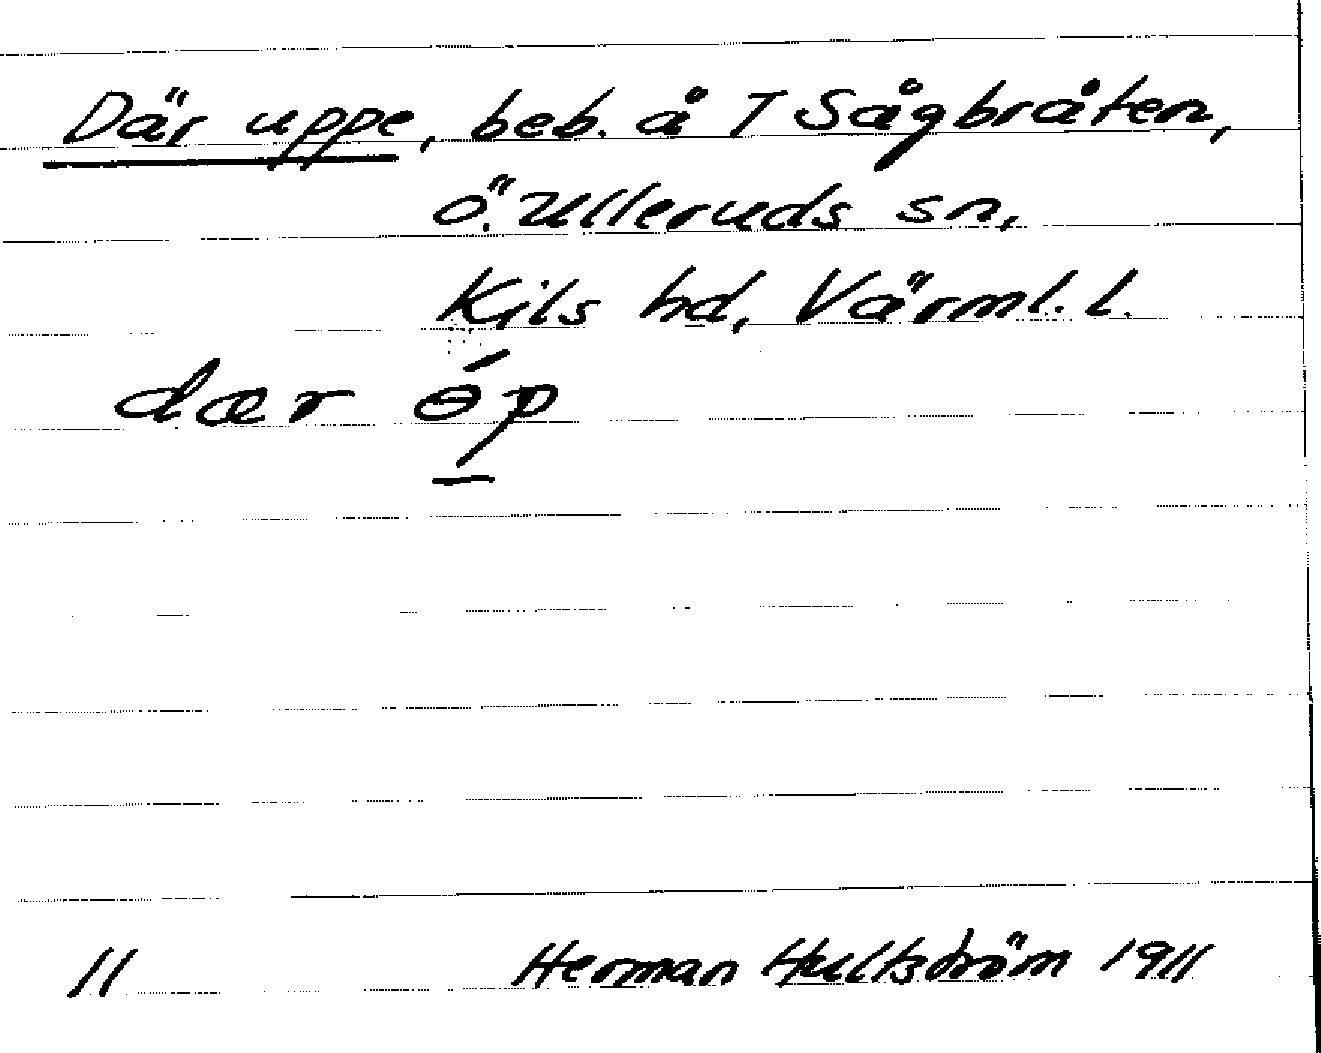 Där uppe, beb. å T Sågbråten,
Ö. Ulleruds sn,
Kils hd, Värml. l.
dær ɵ́p
11 Herman Hultström 1911